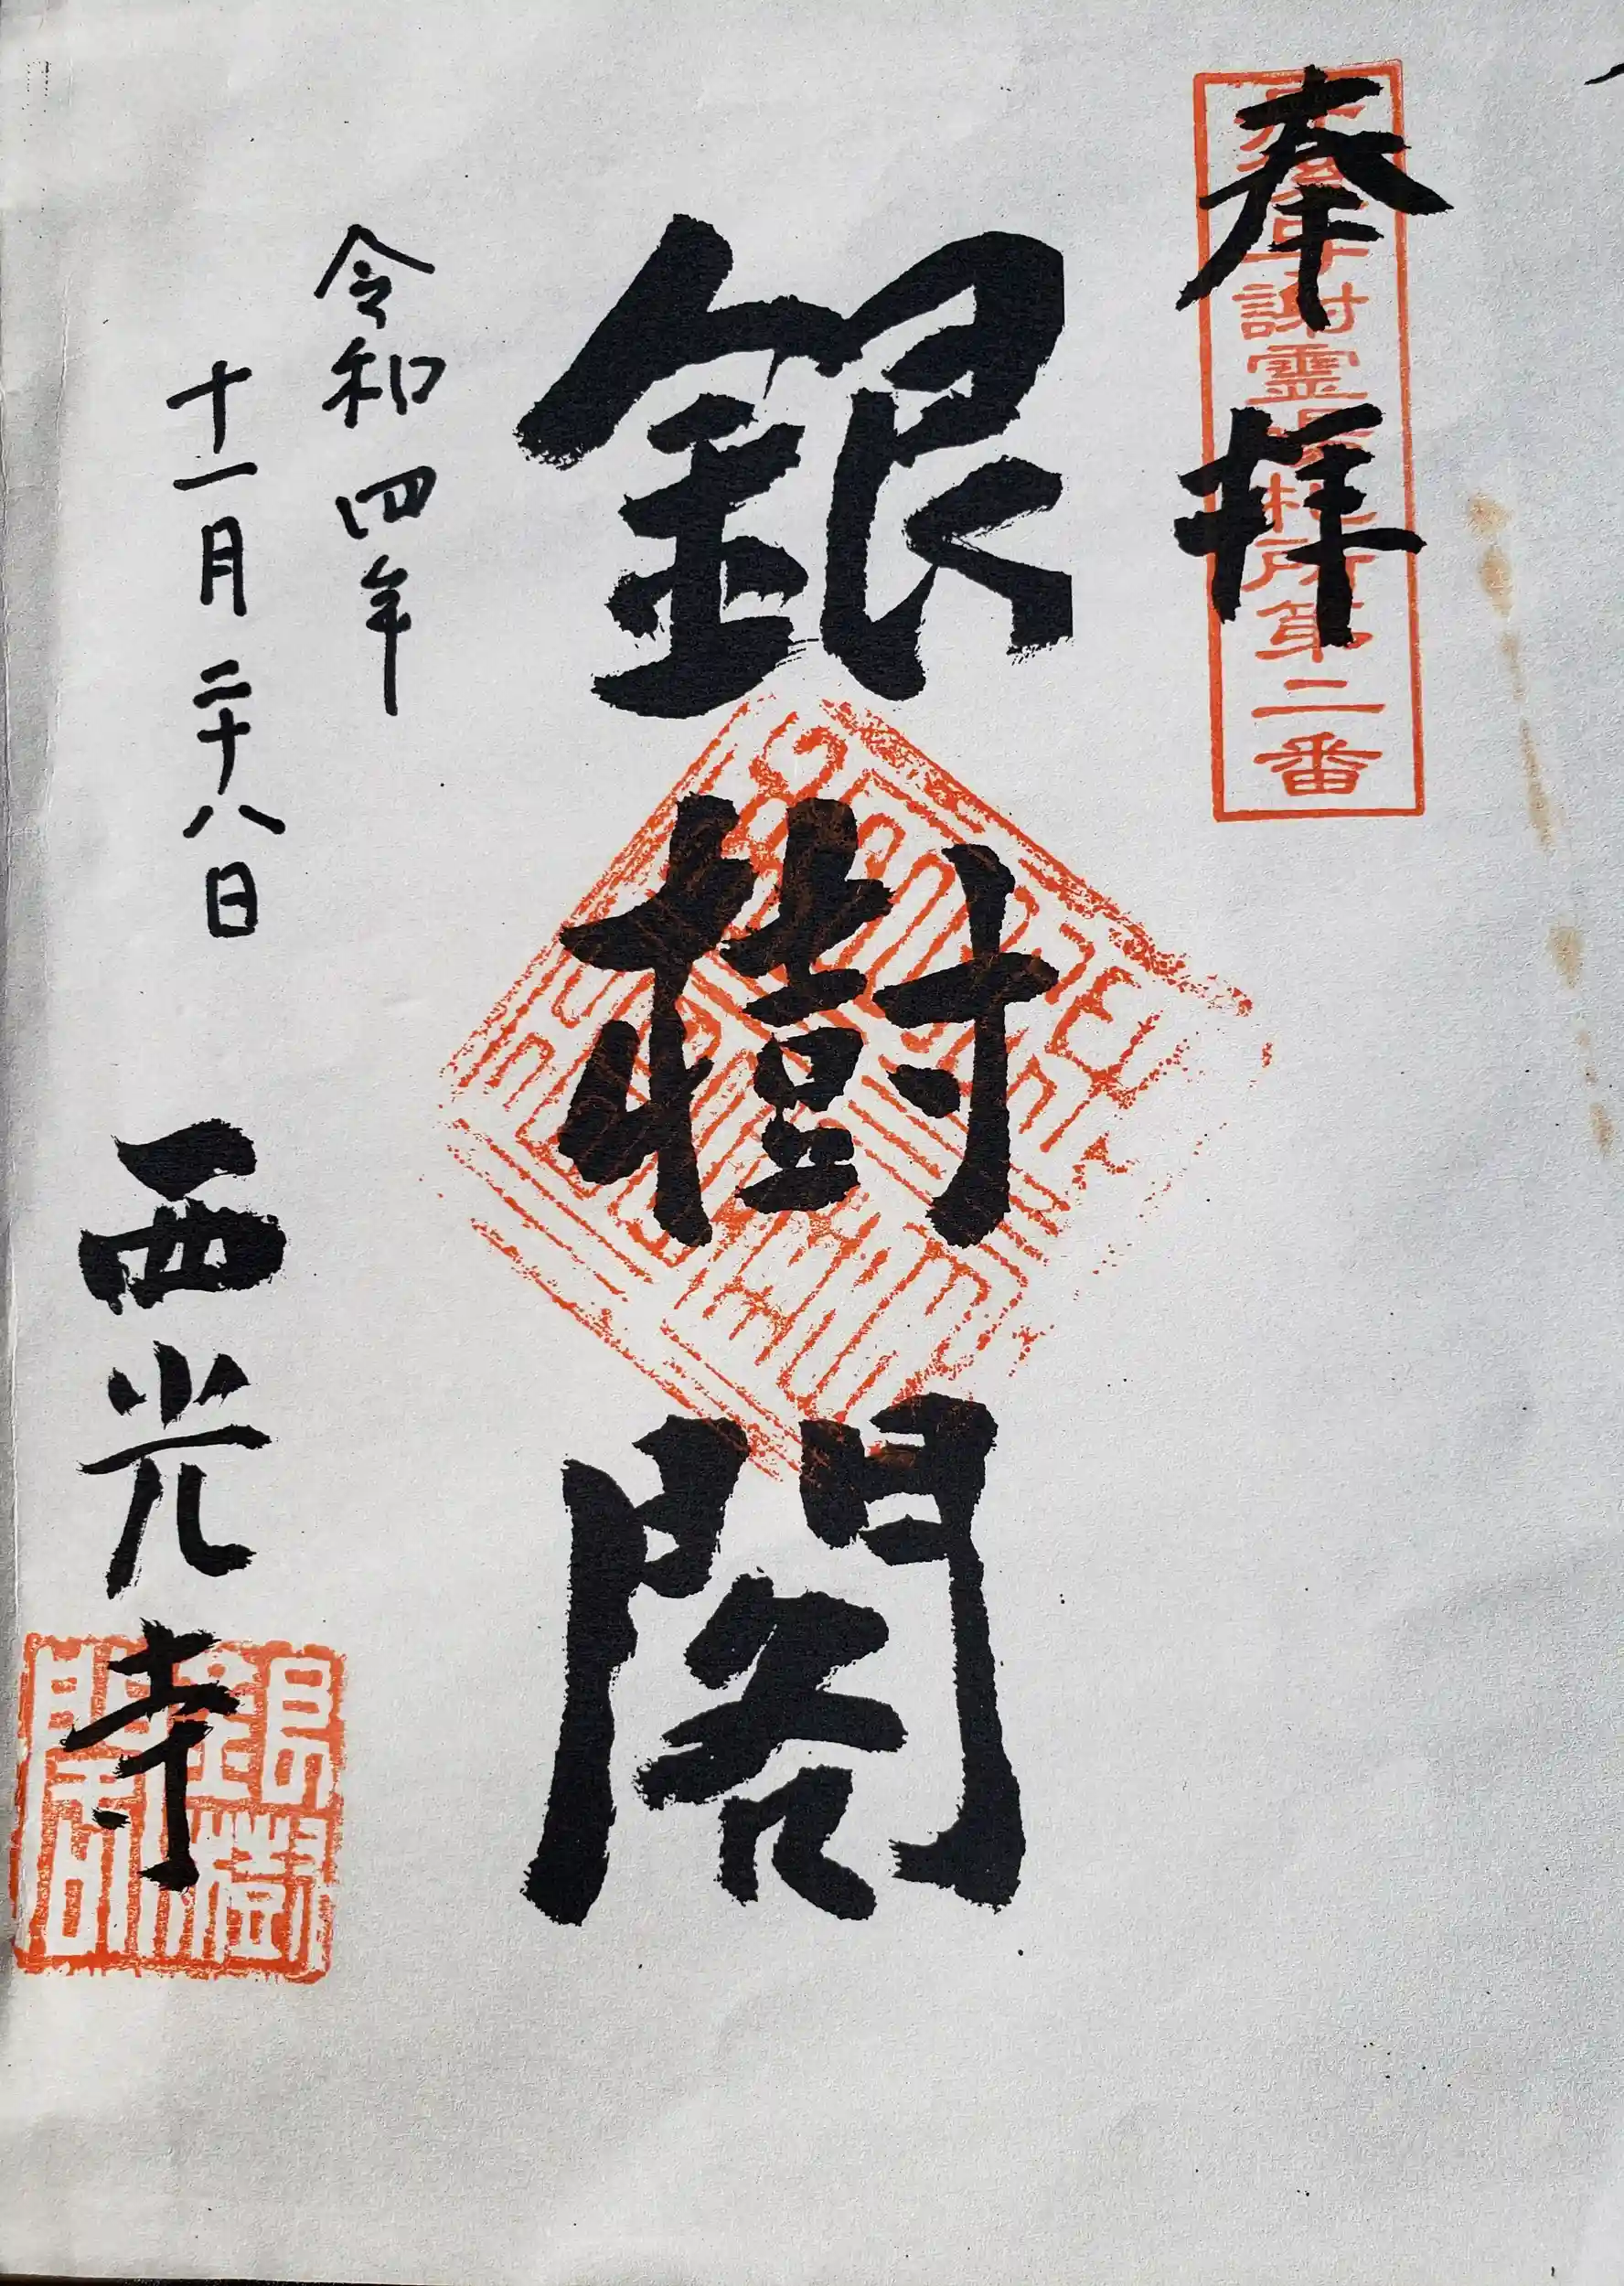 奉拝
謝霊 所第二番
銀樹閣
令和四年
十一月二十八日
西光寺
銀樹